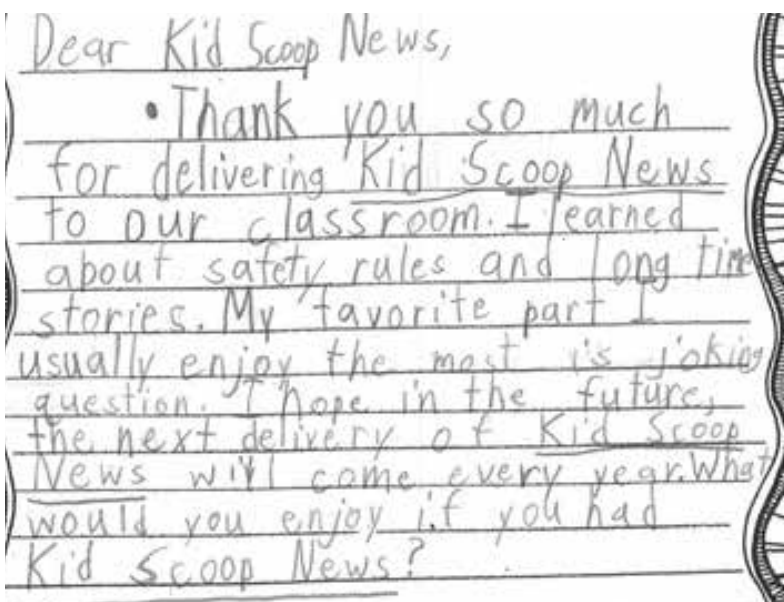 Dear Kid Scoop News,
• Thank you so much
for delivering Kid Scoop News
to our classroom. I learned
about safety rules and long time
stories. My favorite part I
usually enjoy the most is joking
question. I hope in the future,
the next delivery of Kid Scoop
News will come every year. What
would you enjoy if you had
Kid Scoop News?